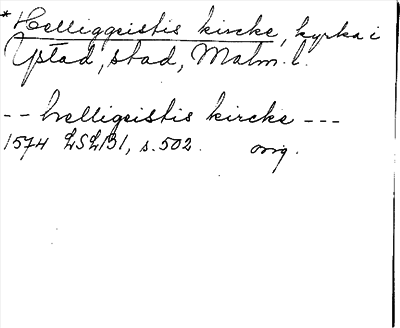 *Helliggeistis kircke, kyrka i
Ystad, stad, Malm. l.
-- helligeistis kircke ---
1574 LSLB1, s. 502. orig.